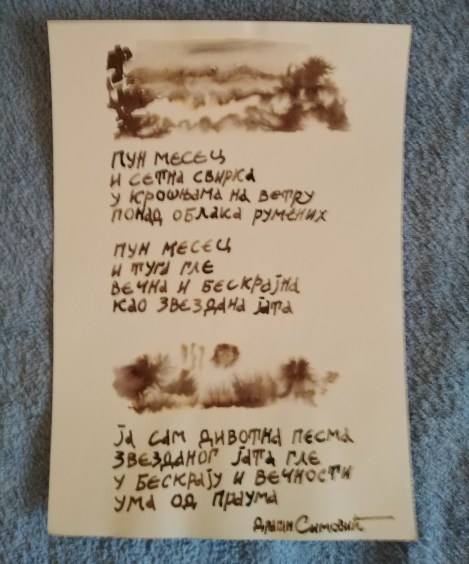 ПУН МЕСЕЦ
И СЕТНА СВИРКА
У КРОШЊАМА НА ВЕТРУ
ПОНАД ОБЛАКА РУМЕНИХ
ПУН МЕСЕЦ
И ТУГА ГЛЕ
ВЕЧНА И БЕСКРАЈНА
КАО ЗВЕЗДАНА ЈАТА
ЈА САМ ДИВОТНА ПЕСМА
ЗВЕЗДАНОГ ЈАТА ГЛЕ
У БЕСКРАЈУ И ВЕЧНОСТИ
УМА ОД ПРАУМА
Симовић